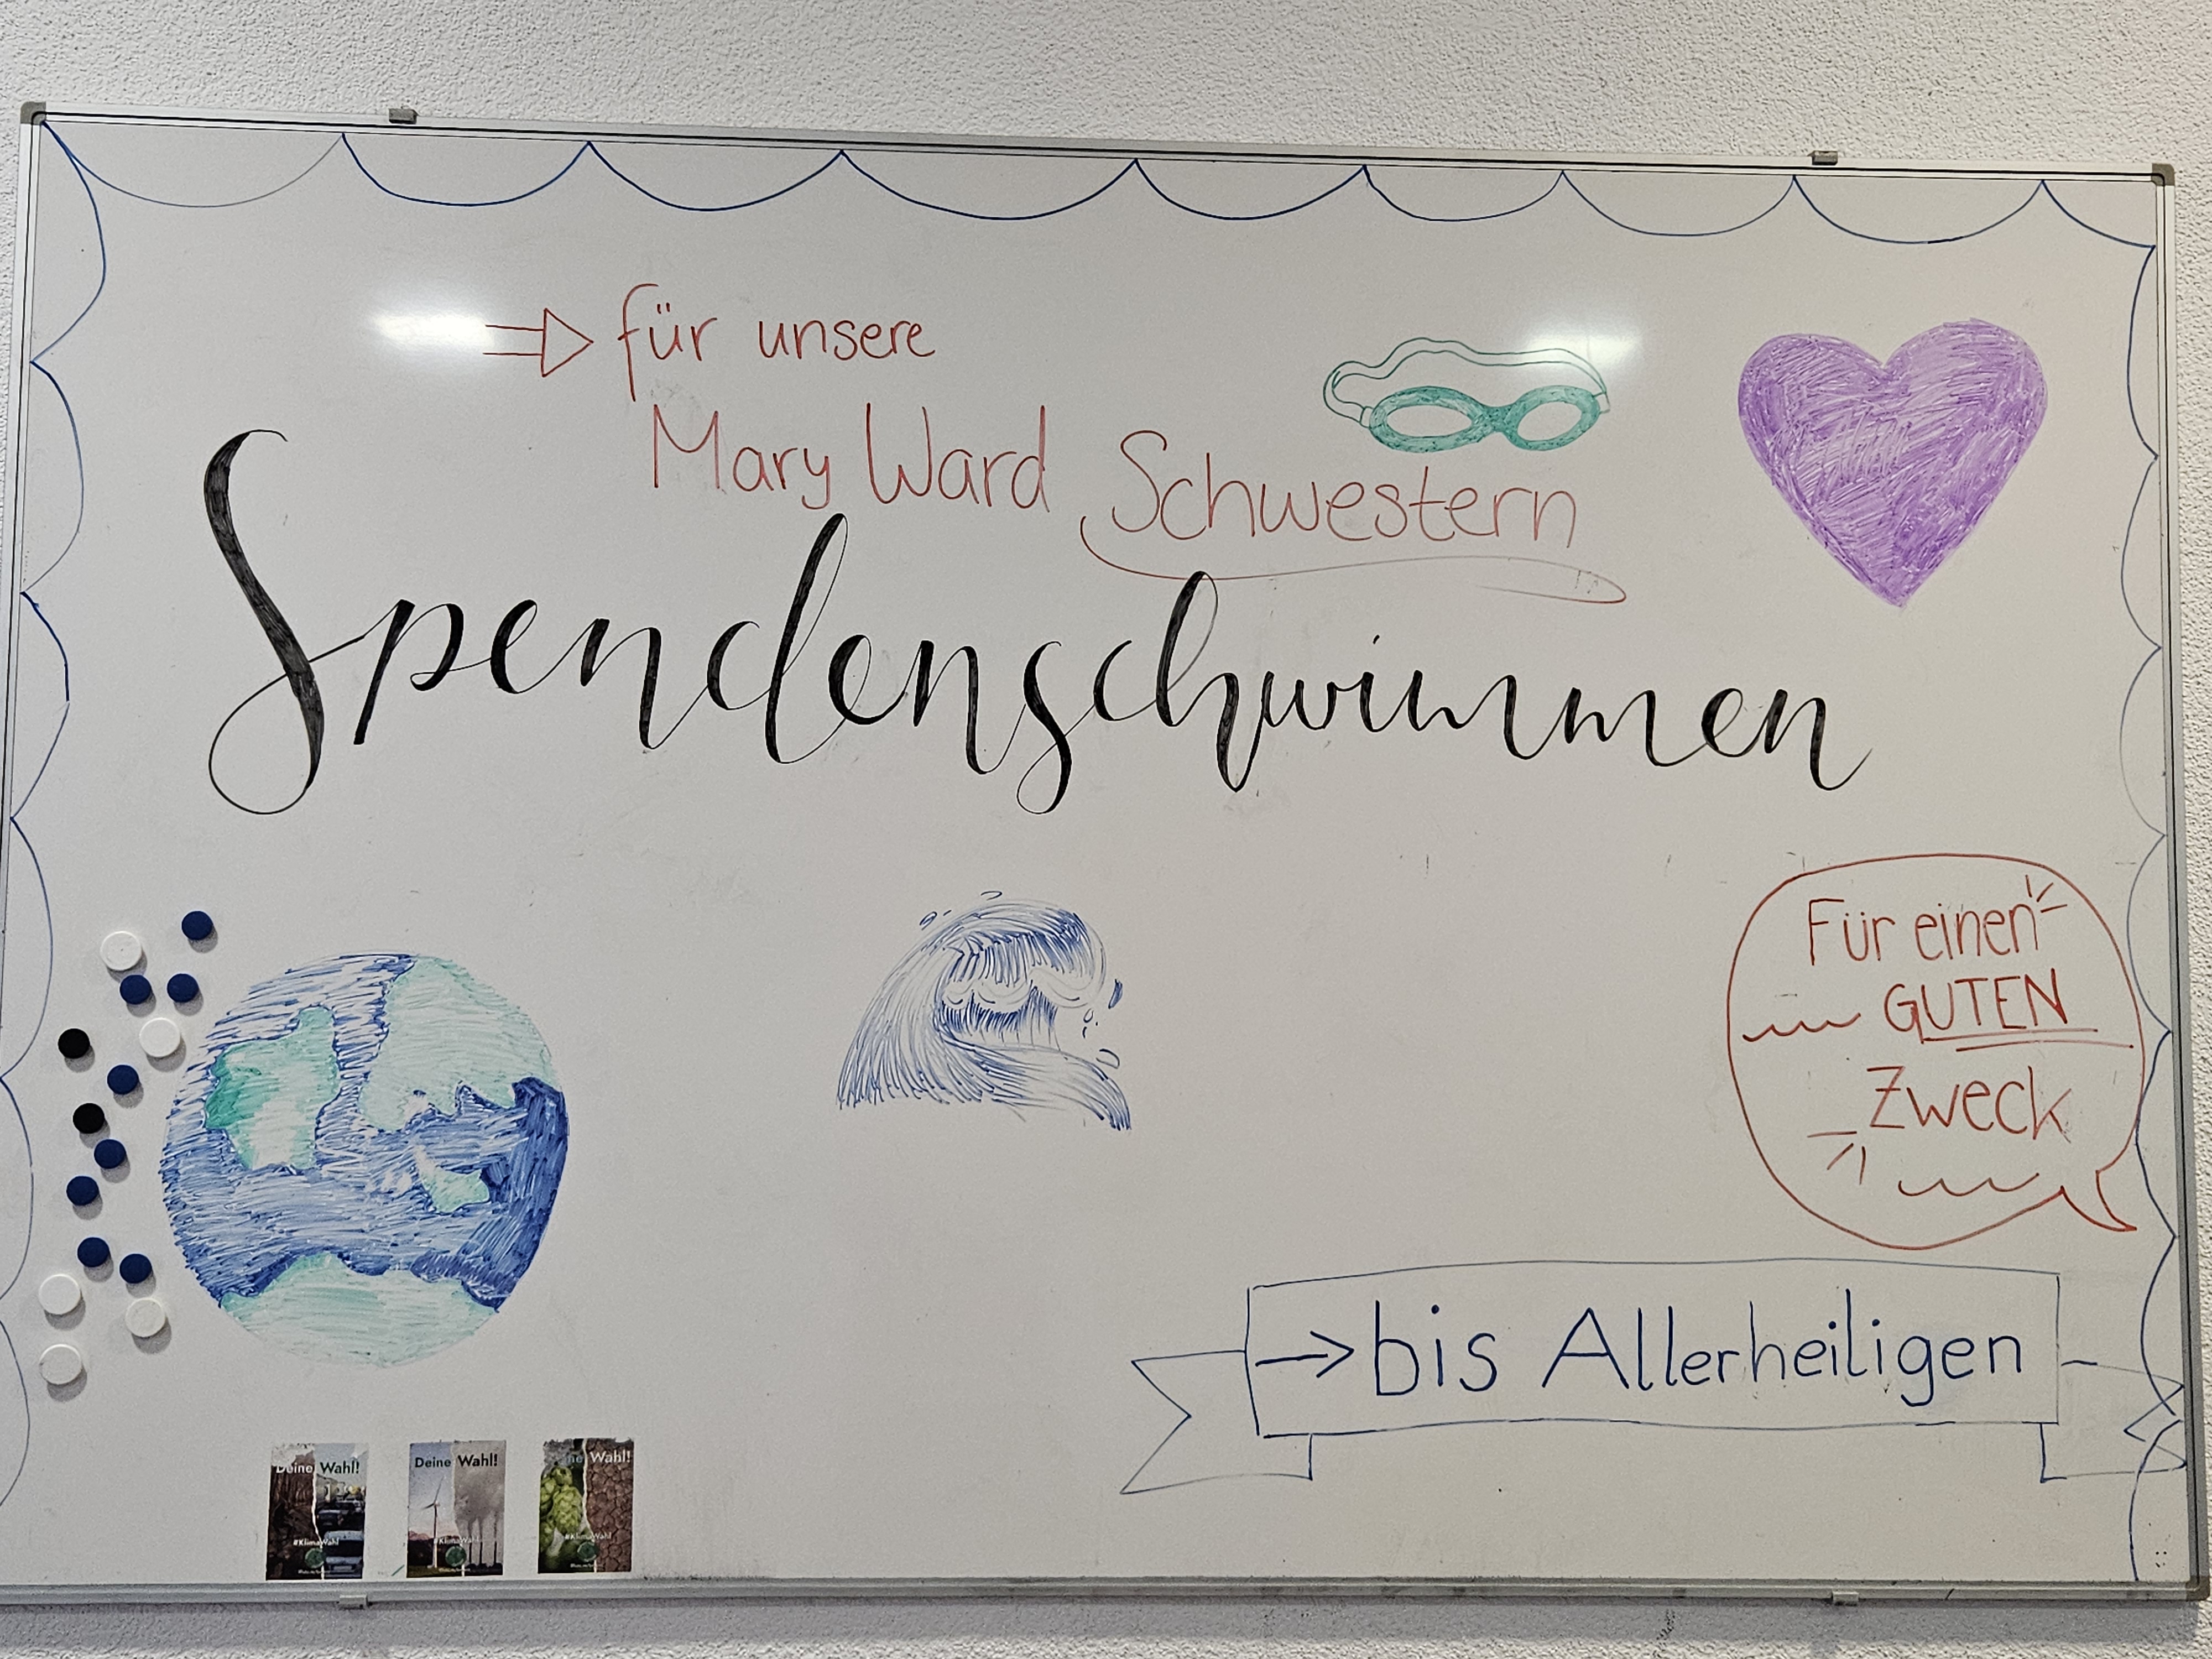 für unsere
Mary Ward Schwestern
Spendenschwimmen
Für einen
GUTEN
Zweck
bis Allerheiligen
Deine Wahl!
#KlimaWahl
Deine Wahl!
#KlimaWahl
Deine Wahl!
#KlimaWahl